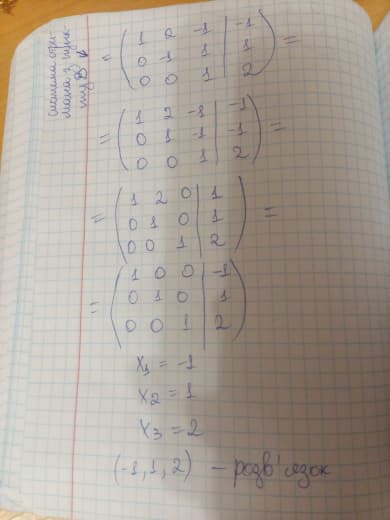 система отри-
мана з пунк-
ту В ↓
= ( 1 2 -1 | -1
0 -1 1 | 1
0 0 1 | 2 ) =
= ( 1 2 -1 | -1
0 1 -1 | -1
0 0 1 | 2 ) =
= ( 1 2 0 | 1
0 1 0 | 1
0 0 1 | 2 ) =
= ( 1 0 0 | -1
0 1 0 | 1
0 0 1 | 2 )
x₁ = -1
x₂ = 1
x₃ = 2
(-1, 1, 2) – розв'язок